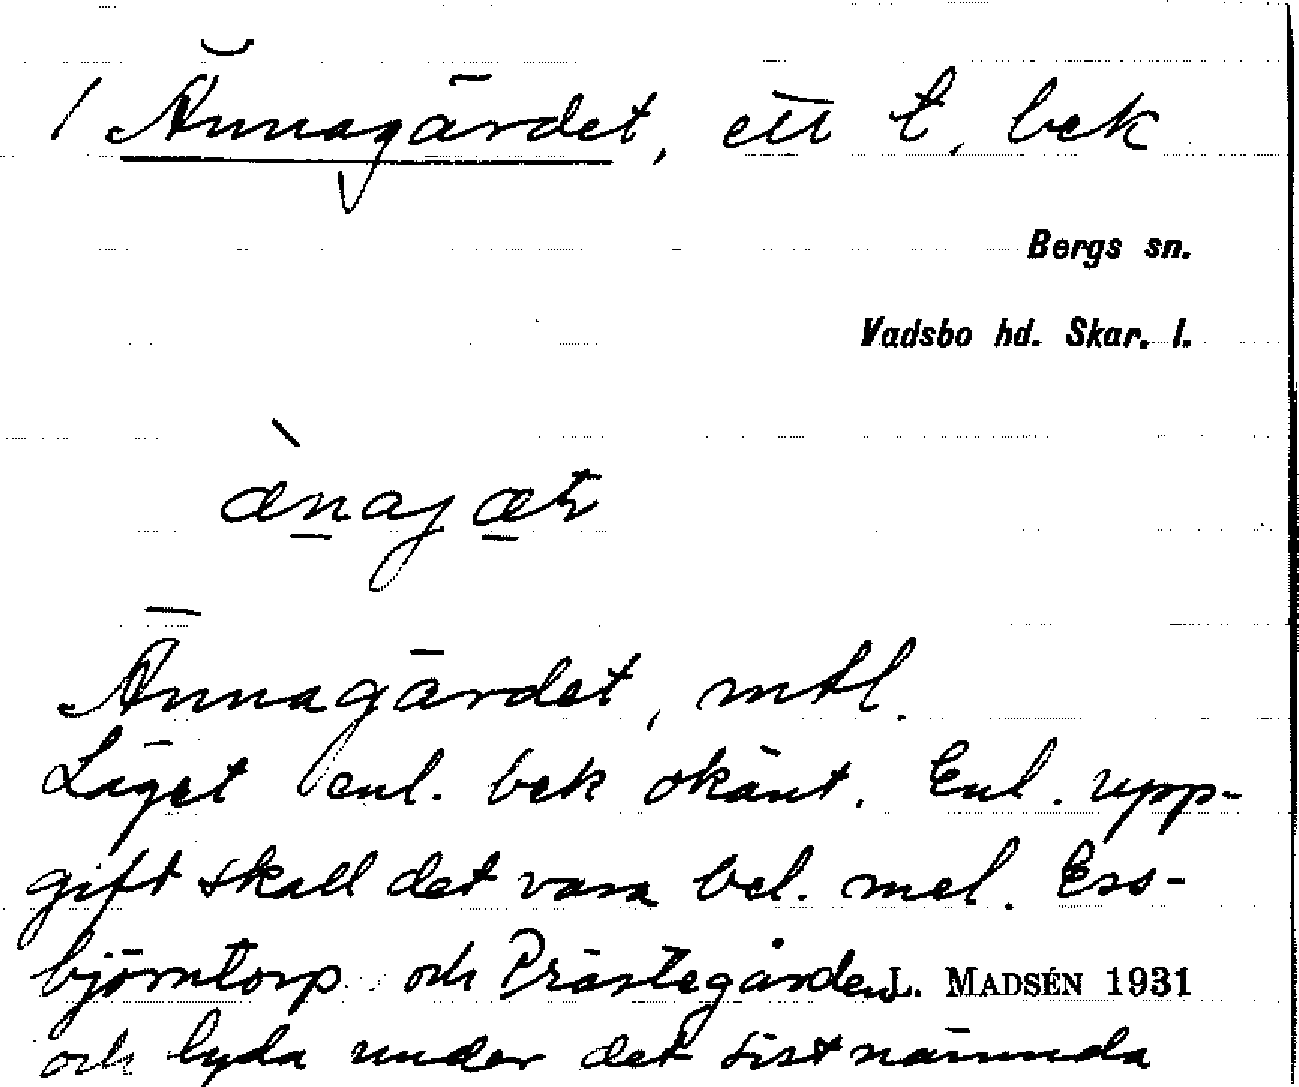 / Ännagärdet, ett t. bek
Bergs sn.
Vadsbo hd. Skar. l.
ænagæt
Ännagärdet, mtl.
Läget enl. bek okänt. Enl. upp-
gift skall det vara bel. mel. Ess-
björntorp och Prästegården
L. MADSÉN 1931
och lyda under det sistnämnda